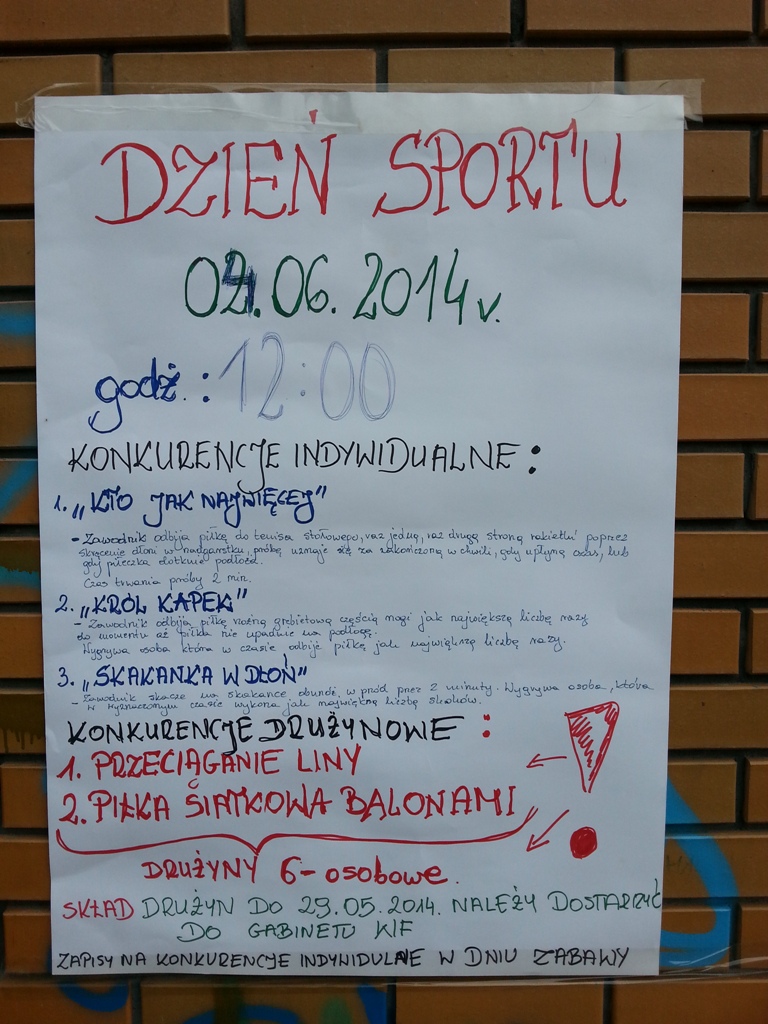 DZIEŃ SPORTU
04.06.2014r.
godź.:12:00
KONKURENCJE INDYWIDUALNE:
1. „KTO JAK NAJWIĘCEJ"
- Zawodnik odbija piłkę do tenisa stołowego, raz jedną, raz drugą stroną rakietki poprzez
skręcenie dłoni w nadgarstku, próbę uznaje się za zakończoną w chwili, gdy upłyną czas, lub
gdy piłeczka dotknie podłoża.
Czas trwania próby 2 min.
2. „KRÓL KAPEK"
- Zawodnik odbija piłkę nożną grzbietową częścią nogi jak największę liczbę razy
do momentu aż piłka nie upadnie na podłogę.
Wygrywa osoba która w czasie odbije piłkę jak największą liczbę razy.
3. „SKAKANKA W DŁOŃ"
- Zawodnik skacze na skakance obunóż, w przód przez 2 minuty. Wygrywa osoba, która
w wyznaczonym czasie wykona jak największą liczbę skoków.
KONKURENCJE DRUŻYNOWE:
1. PRZECIĄGANIE LINY
2. PIŁKA SIATKOWA BALONAMI
!
DRUŻYNY 6-osobowe.
SKŁAD DRUŻYN DO 29.05.2014. NALEŻY DOSTARCZYĆ
DO GABINETU KIF
ZAPISY NA KONKURENCJE INDYWIDULNE W DNIU ZABAWY